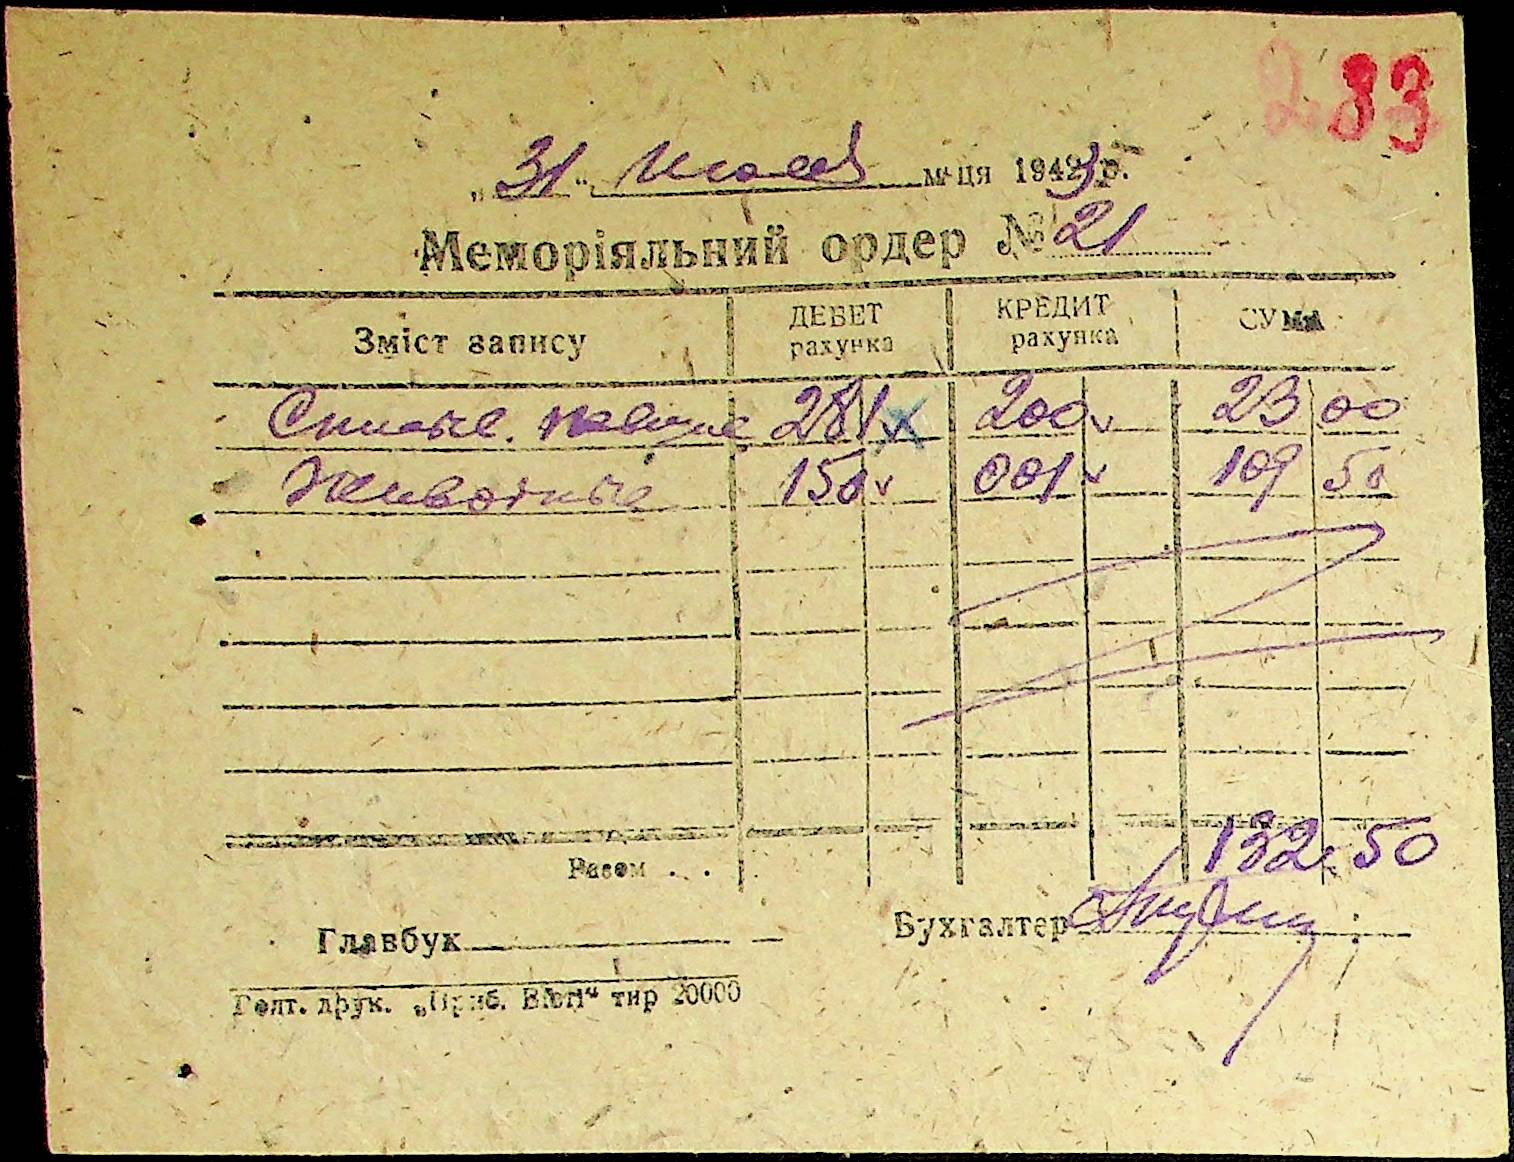 283
„31“ Июля м-ця 1943 р.
Меморіяльний ордер № 21
Зміст запису ДЕБЕТ рахунка КРЕДИТ рахунка СУМА
281 200 23 00
Животные 150 001 109 50
Разом . . 132.50
Главбук Бухгалтер
Голт. друк. „Приб. Вісті“ тир 20000